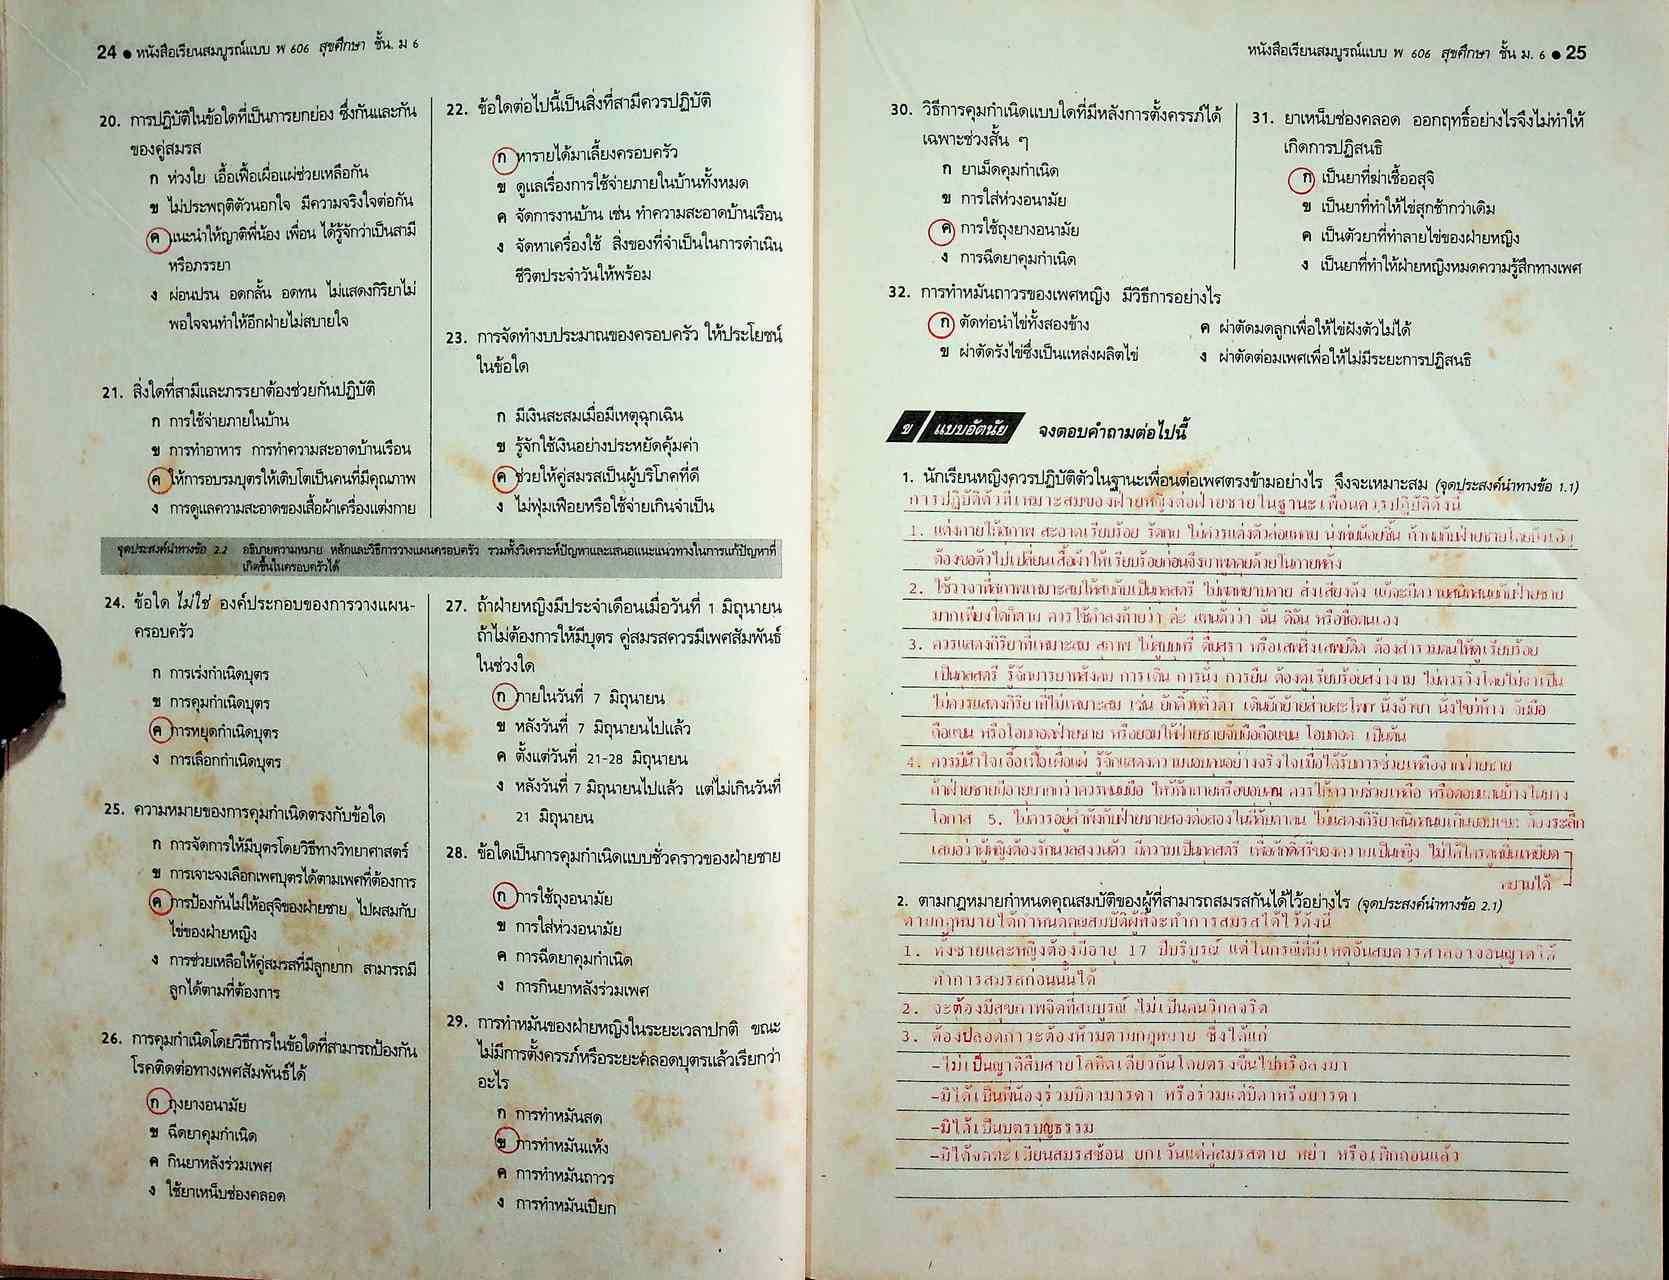 24 ● หนังสือเรียนสมบูรณ์แบบ พ 606 สุขศึกษา ชั้น. ม 6
20. การปฏิบัติในข้อใดที่เป็นการยกย่อง ซึ่งกันและกัน
ของคู่สมรส
ก ห่วงใย เอื้อเฟื้อเผื่อแผ่ช่วยเหลือกัน
ข ไม่ประพฤติตัวนอกใจ มีความจริงใจต่อกัน
ค แนะนำให้ญาติพี่น้อง เพื่อน ได้รู้จักว่าเป็นสามี
หรือภรรยา
ง ผ่อนปรน อดกลั้น อดทน ไม่แสดงกิริยาไม่
พอใจจนทำให้อีกฝ่ายไม่สบายใจ
21. สิ่งใดที่สามีและภรรยาต้องช่วยกันปฏิบัติ
ก การใช้จ่ายภายในบ้าน
ข การทำอาหาร การทำความสะอาดบ้านเรือน
ค ให้การอบรมบุตรให้เติบโตเป็นคนที่มีคุณภาพ
ง การดูแลความสะอาดของเสื้อผ้าเครื่องแต่งกาย
22. ข้อใดต่อไปนี้เป็นสิ่งที่สามีควรปฏิบัติ
ก หารายได้มาเลี้ยงครอบครัว
ข ดูแลเรื่องการใช้จ่ายภายในบ้านทั้งหมด
ค จัดการงานบ้าน เช่น ทำความสะอาดบ้านเรือน
ง จัดหาเครื่องใช้ สิ่งของที่จำเป็นในการดำเนิน
ชีวิตประจำวันให้พร้อม
23. การจัดทำงบประมาณของครอบครัว ให้ประโยชน์
ในข้อใด
ก มีเงินสะสมเมื่อมีเหตุฉุกเฉิน
ข รู้จักใช้เงินอย่างประหยัดคุ้มค่า
ค ช่วยให้คู่สมรสเป็นผู้บริโภคที่ดี
ง ไม่ฟุ่มเฟือยหรือใช้จ่ายเกินจำเป็น
จุดประสงค์นำทางข้อ 2.2 อธิบายความหมาย หลักและวิธีการวางแผนครอบครัว รวมทั้งวิเคราะห์ปัญหาและเสนอแนะแนวทางในการแก้ปัญหาที่
เกิดขึ้นในครอบครัวได้
24. ข้อใด ไม่ใช่ องค์ประกอบของการวางแผน-
ครอบครัว
ก การเร่งกำเนิดบุตร
ข การคุมกำเนิดบุตร
ค การหยุดกำเนิดบุตร
ง การเลือกกำเนิดบุตร
25. ความหมายของการคุมกำเนิดตรงกับข้อใด
ก การจัดการให้มีบุตรโดยวิธีทางวิทยาศาสตร์
ข การเจาะจงเลือกเพศบุตรได้ตามเพศที่ต้องการ
ค การป้องกันไม่ให้อสุจิของฝ่ายชาย ไปผสมกับ
ไข่ของฝ่ายหญิง
ง การช่วยเหลือให้คู่สมรสที่มีลูกยาก สามารถมี
ลูกได้ตามที่ต้องการ
26. การคุมกำเนิดโดยวิธีการในข้อใดที่สามารถป้องกัน
โรคติดต่อทางเพศสัมพันธ์ได้
ก ถุงยางอนามัย
ข ฉีดยาคุมกำเนิด
ค กินยาหลังร่วมเพศ
ง ใช้ยาเหน็บช่องคลอด
27. ถ้าฝ่ายหญิงมีประจำเดือนเมื่อวันที่ 1 มิถุนายน
ถ้าไม่ต้องการให้มีบุตร คู่สมรสควรมีเพศสัมพันธ์
ในช่วงใด
ก ภายในวันที่ 7 มิถุนายน
ข หลังวันที่ 7 มิถุนายนไปแล้ว
ค ตั้งแต่วันที่ 21-28 มิถุนายน
ง หลังวันที่ 7 มิถุนายนไปแล้ว แต่ไม่เกินวันที่
21 มิถุนายน
28. ข้อใดเป็นการคุมกำเนิดแบบชั่วคราวของฝ่ายชาย
ก การใช้ถุงอนามัย
ข การใส่ห่วงอนามัย
ค การฉีดยาคุมกำเนิด
ง การกินยาหลังร่วมเพศ
29. การทำหมันของฝ่ายหญิงในระยะเวลาปกติ ขณะ
ไม่มีการตั้งครรภ์หรือระยะคลอดบุตรแล้วเรียกว่า
อะไร
ก การทำหมันสด
ข การทำหมันแห้ง
ค การทำหมันถาวร
ง การทำหมันเปียก
หนังสือเรียนสมบูรณ์แบบ พ 606 สุขศึกษา ชั้น ม. 6 ● 25
30. วิธีการคุมกำเนิดแบบใดที่มีหลังการตั้งครรภ์ได้
เฉพาะช่วงสั้น ๆ
ก ยาเม็ดคุมกำเนิด
ข การใส่ห่วงอนามัย
ค การใช้ถุงยางอนามัย
ง การฉีดยาคุมกำเนิด
31. ยาเหน็บช่องคลอด ออกฤทธิ์อย่างไรจึงไม่ทำให้
เกิดการปฏิสนธิ
ก เป็นยาที่ฆ่าเชื้ออสุจิ
ข เป็นยาที่ทำให้ไข่สุกช้ากว่าเดิม
ค เป็นตัวยาที่ทำลายไข่ของฝ่ายหญิง
ง เป็นยาที่ทำให้ฝ่ายหญิงหมดความรู้สึกทางเพศ
32. การทำหมันถาวรของเพศหญิง มีวิธีการอย่างไร
ก ตัดท่อนำไข่ทั้งสองข้าง ค ผ่าตัดมดลูกเพื่อให้ไข่ฝังตัวไม่ได้
ข ผ่าตัดรังไข่ซึ่งเป็นแหล่งผลิตไข่ ง ผ่าตัดต่อมเพศเพื่อให้ไม่มีระยะการปฏิสนธิ
ข แบบอัตนัย จงตอบคำถามต่อไปนี้
1. นักเรียนหญิงควรปฏิบัติตัวในฐานะเพื่อนต่อเพศตรงข้ามอย่างไร จึงจะเหมาะสม (จุดประสงค์นำทางข้อ 1.1)
การปฏิบัติตัวที่เหมาะสมของฝ่ายหญิงต่อฝ่ายชายในฐานะเพื่อนควรปฏิบัติดังนี้
1. แต่งกายให้สุภาพ สะอาดเรียบร้อย รัดกุม ไม่ควรแต่งตัวล่อแหลม นุ่งห่มน้อยชิ้น ถ้าพบกับฝ่ายชายโดยบังเอิญ
ต้องขอตัวไปเปลี่ยนเสื้อผ้าให้เรียบร้อยก่อนจึงมาพูดคุยด้วยในภายหลัง
2. ใช้วาจาที่สุภาพเหมาะสมให้สมกับเป็นกุลสตรี ไม่พูดหยาบคาย ส่งเสียงดัง แม้จะมีความสนิทสนมกับฝ่ายชาย
มากเพียงใดก็ตาม ควรใช้คำลงท้ายว่า ค่ะ แทนตัวว่า ฉัน ดิฉัน หรือชื่อตนเอง
3. ควรแสดงกิริยาที่เหมาะสม สุภาพ ไม่สูบบุหรี่ ดื่มสุรา หรือเสพสิ่งเสพย์ติด ต้องสำรวมตนให้ดูเรียบร้อย
เป็นกุลสตรี รู้จักมารยาทสังคม การเดิน การนั่ง การยืน ต้องดูเรียบร้อยสง่างาม ไม่ควรวิ่งโดยไม่จำเป็น
ไม่ควรแสดงกิริยาที่ไม่เหมาะสม เช่น ยักคิ้วหลิ่วตา เดินยักย้ายส่ายสะโพก นั่งอ้าขา นั่งไขว่ห้าง จับมือ
ถือแขน หรือโอบกอดฝ่ายชาย หรือยอมให้ฝ่ายชายจับมือถือแขน โอบกอด เป็นต้น
4. ควรมีน้ำใจเอื้อเฟื้อเผื่อแผ่ รู้จักแสดงความขอบคุณอย่างจริงใจเมื่อได้รับการช่วยเหลือจากฝ่ายชาย
ถ้าฝ่ายชายมีอายุมากกว่าควรพนมมือ ไหว้ทักทายหรือขอบคุณ ควรให้ความช่วยเหลือ หรือตอบแทนบ้างในบาง
โอกาส 5. ไม่ควรอยู่ลำพังกับฝ่ายชายสองต่อสองในที่ลับตาคน ไม่แสดงกิริยาสนิทสนมเกินขอบเขต ต้องระลึก
เสมอว่าผู้หญิงต้องรักนวลสงวนตัว มีความเป็นกุลสตรี เพื่อศักดิ์ศรีของความเป็นหญิง ไม่ให้ใครดูหมิ่นเหยียด
หยามได้
2. ตามกฎหมายกำหนดคุณสมบัติของผู้ที่สามารถสมรสกันได้ไว้อย่างไร (จุดประสงค์นำทางข้อ 2.1)
ตามกฎหมายได้กำหนดคุณสมบัติผู้ที่จะทำการสมรสได้ไว้ดังนี้
1. ทั้งชายและหญิงต้องมีอายุ 17 ปีบริบูรณ์ แต่ในกรณีที่มีเหตุอันสมควรศาลอาจอนุญาตให้
ทำการสมรสก่อนนั้นได้
2. จะต้องมีสุขภาพจิตที่สมบูรณ์ ไม่เป็นคนวิกลจริต
3. ต้องปลอดภาวะต้องห้ามตามกฎหมาย ซึ่งได้แก่
-ไม่เป็นญาติสืบสายโลหิตเดียวกันโดยตรงขึ้นไปหรือลงมา
-มิได้เป็นพี่น้องร่วมบิดามารดา หรือร่วมแต่บิดาหรือมารดา
-มิได้เป็นบุตรบุญธรรม
-มิได้จดทะเบียนสมรสซ้อน ยกเว้นแต่คู่สมรสตาย หย่า หรือเพิกถอนแล้ว